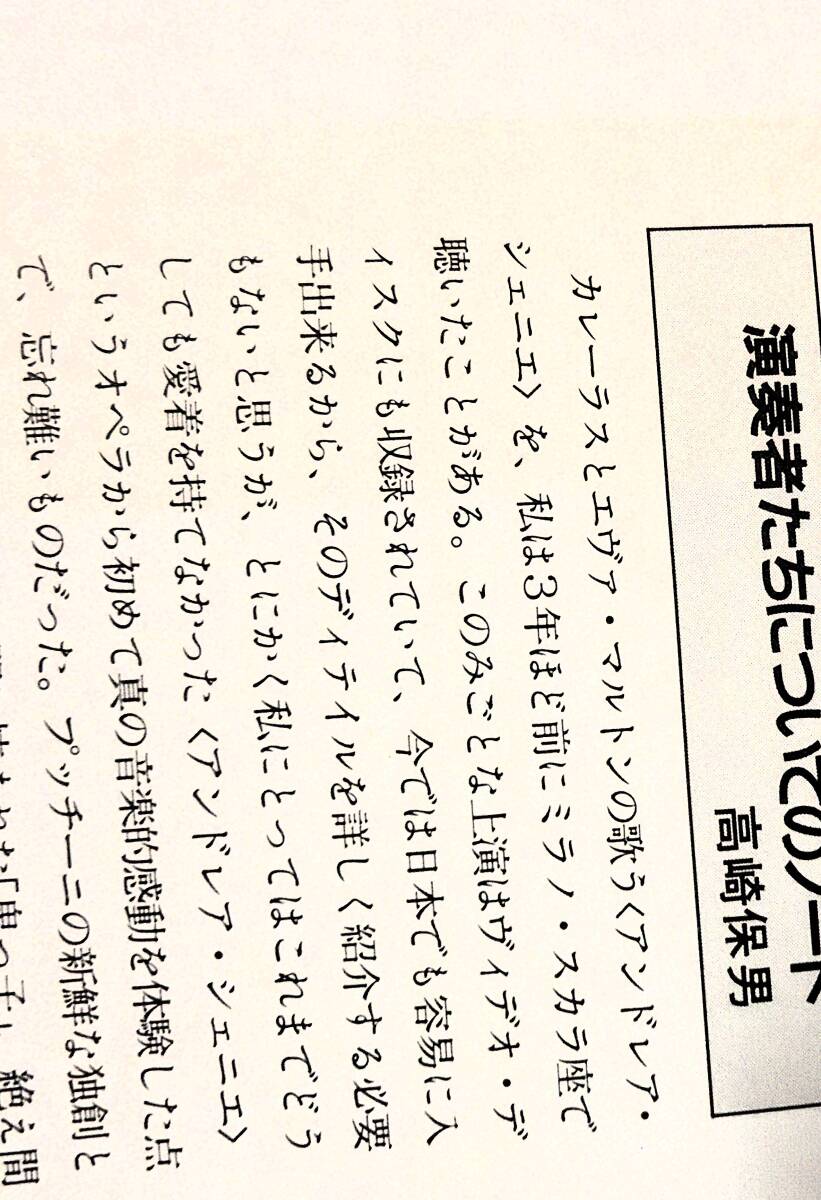 演奏者たちについてのノート
高崎保男
カレーラスとエヴァ・マルトンの歌う〈アンドレア・
シェニエ〉を、私は3年ほど前にミラノ・スカラ座で
聴いたことがある。このみごとな上演はヴィデオ・デ
ィスクにも収録されていて、今では日本でも容易に入
手出来るから、そのディテイルを詳しく紹介する必要
もないと思うが、とにかく私にとってはこれまでどう
しても愛着を持てなかった〈アンドレア・シェニエ〉
というオペラから初めて真の音楽的感動を体験した点
で、忘れ難いものだった。プッチーニの新鮮な独創と
「鬼っ子」絶え間